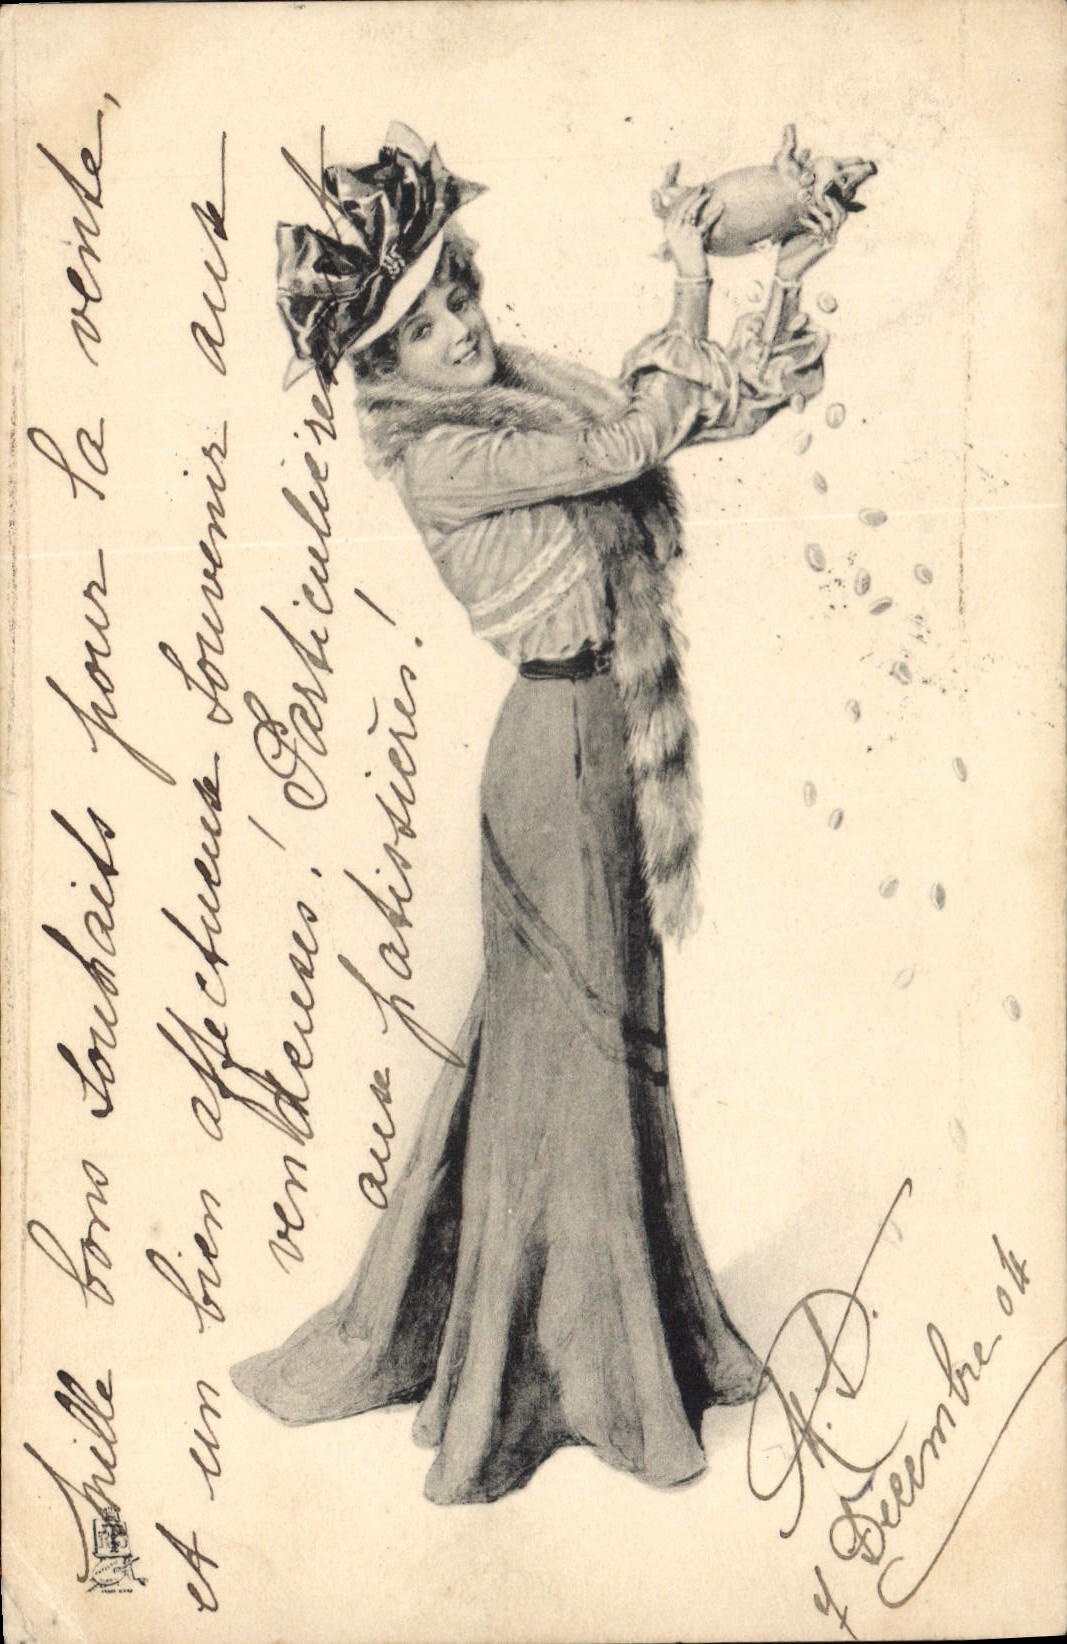 Mille bons souhaits pour la vente,
et un bien affectueux souvenir aux
vendeuses! Particulièrement
aux patissières!
M. D.
7 Decembre 04